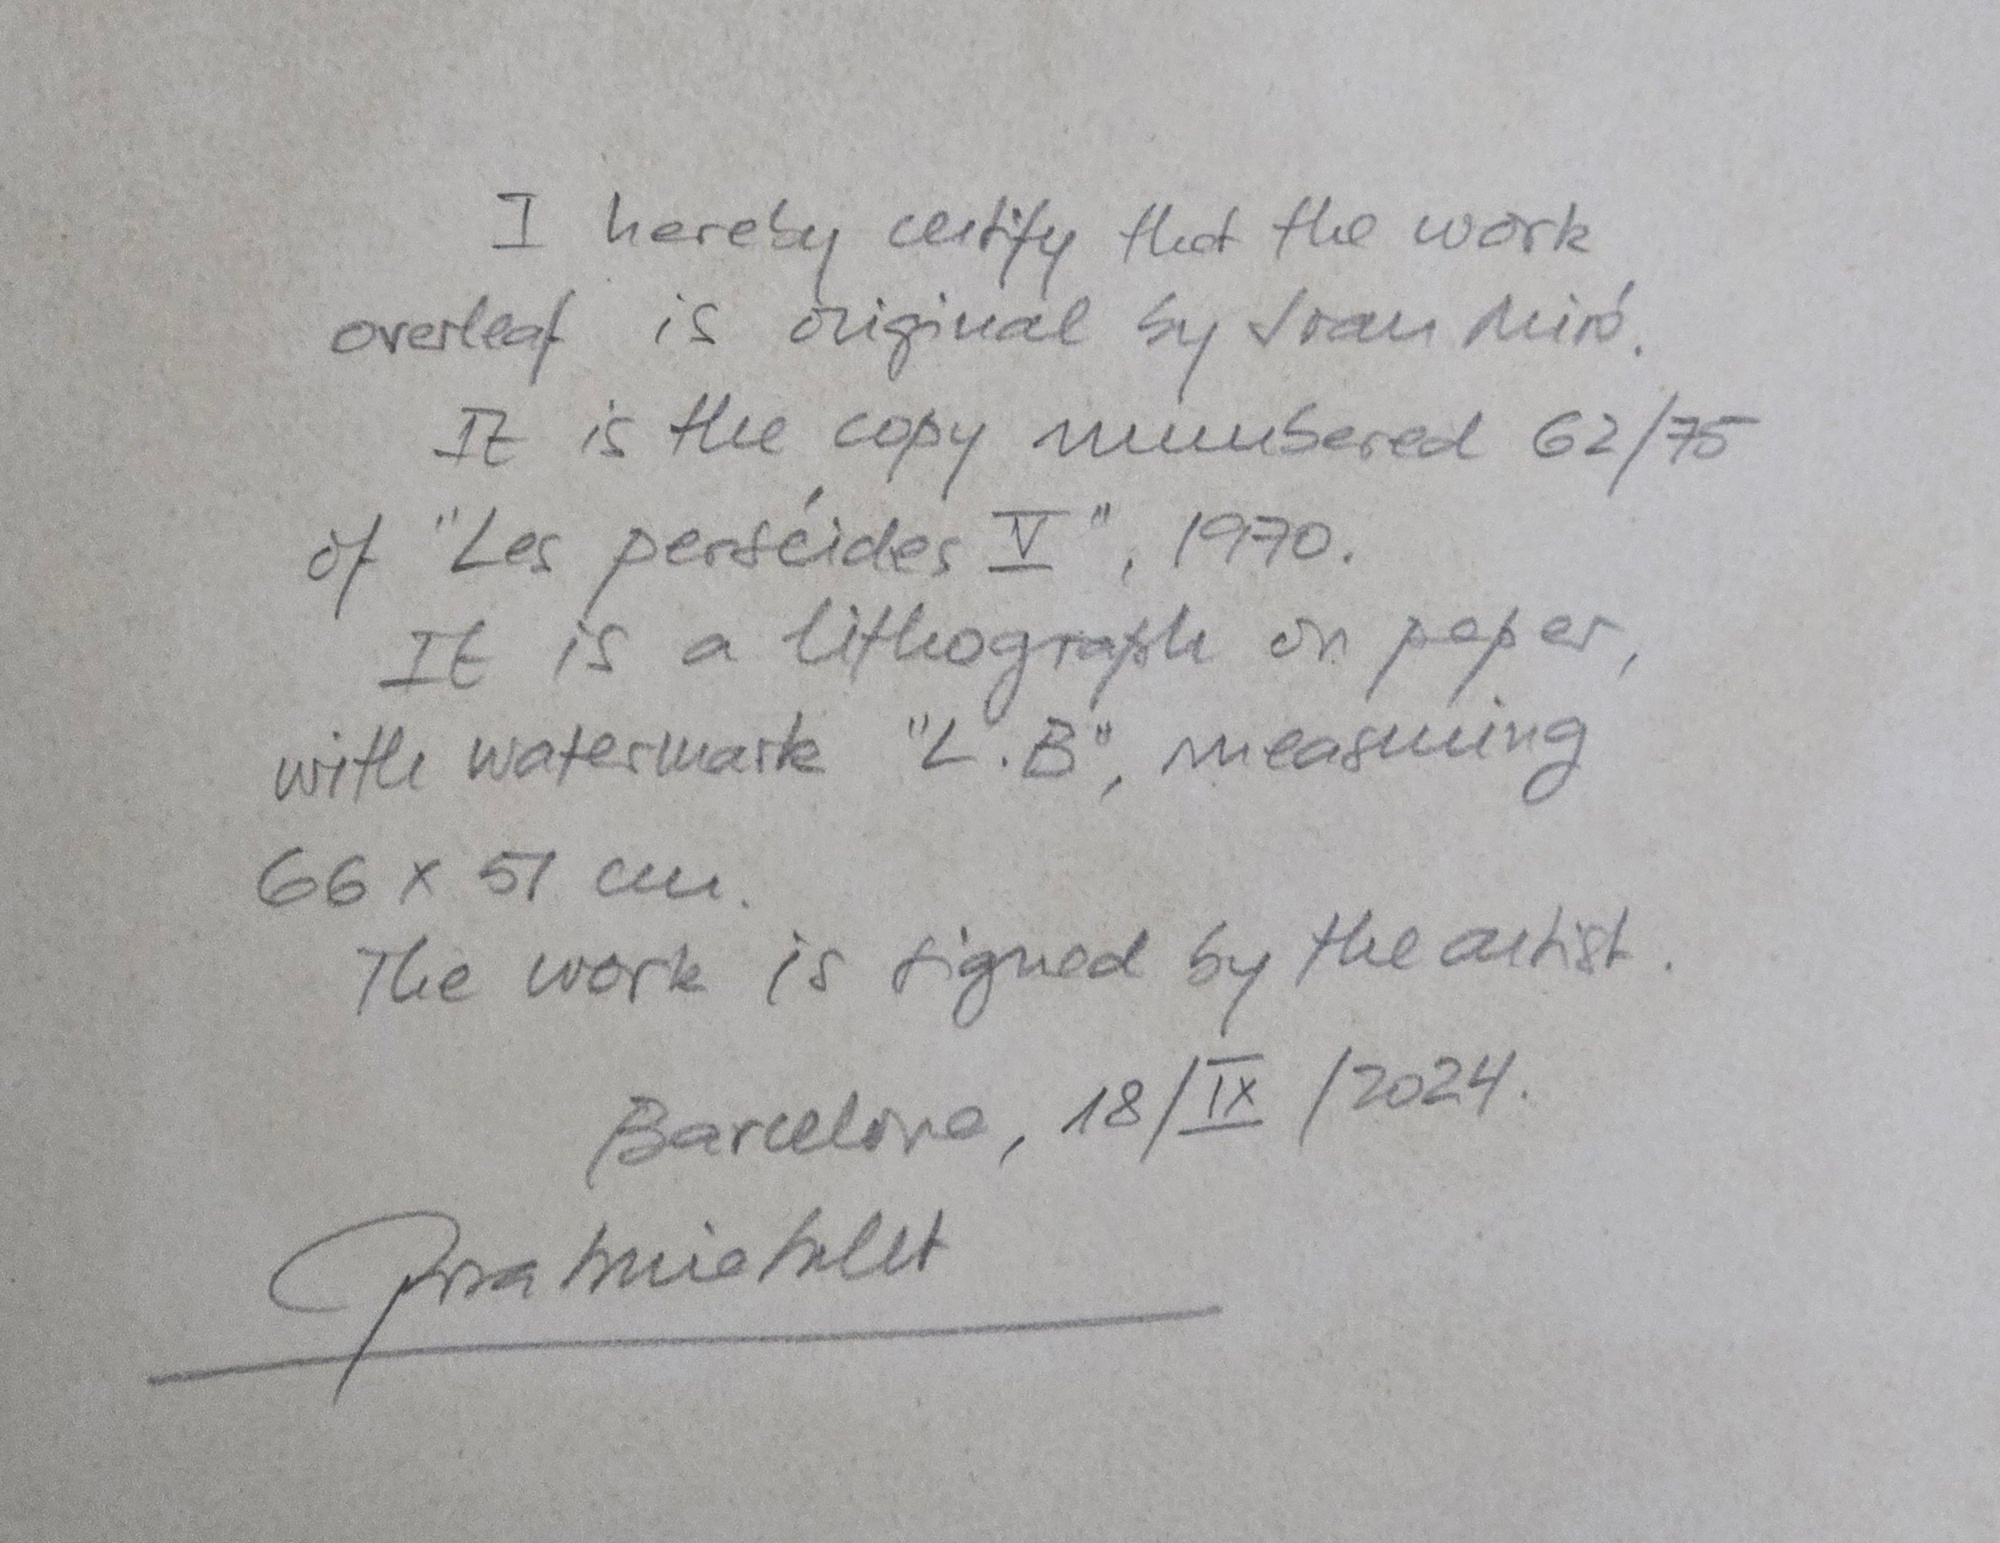 I hereby certify that the work
overleaf is original by Joan Miró.
It is the copy numbered 62/75
of "Les perséides V", 1970.
It is a lithograph on paper,
with watermark "L.B", measuring
66 x 51 cm.
The work is signed by the artist.
Barcelona, 18/IX/2024.
Rosa Maria Malet